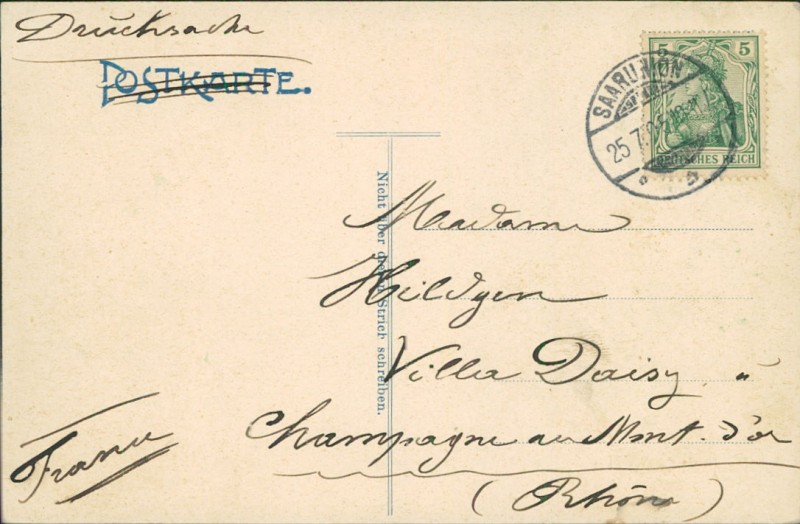 Drucksache
POSTKARTE.
5 5
DEUTSCHES REICH
25.7.
Nicht über diesen Strich schreiben.
Madame
Hildgen
Villa Daisy à
Champagne au Mont. d'or
(Rhône)
France